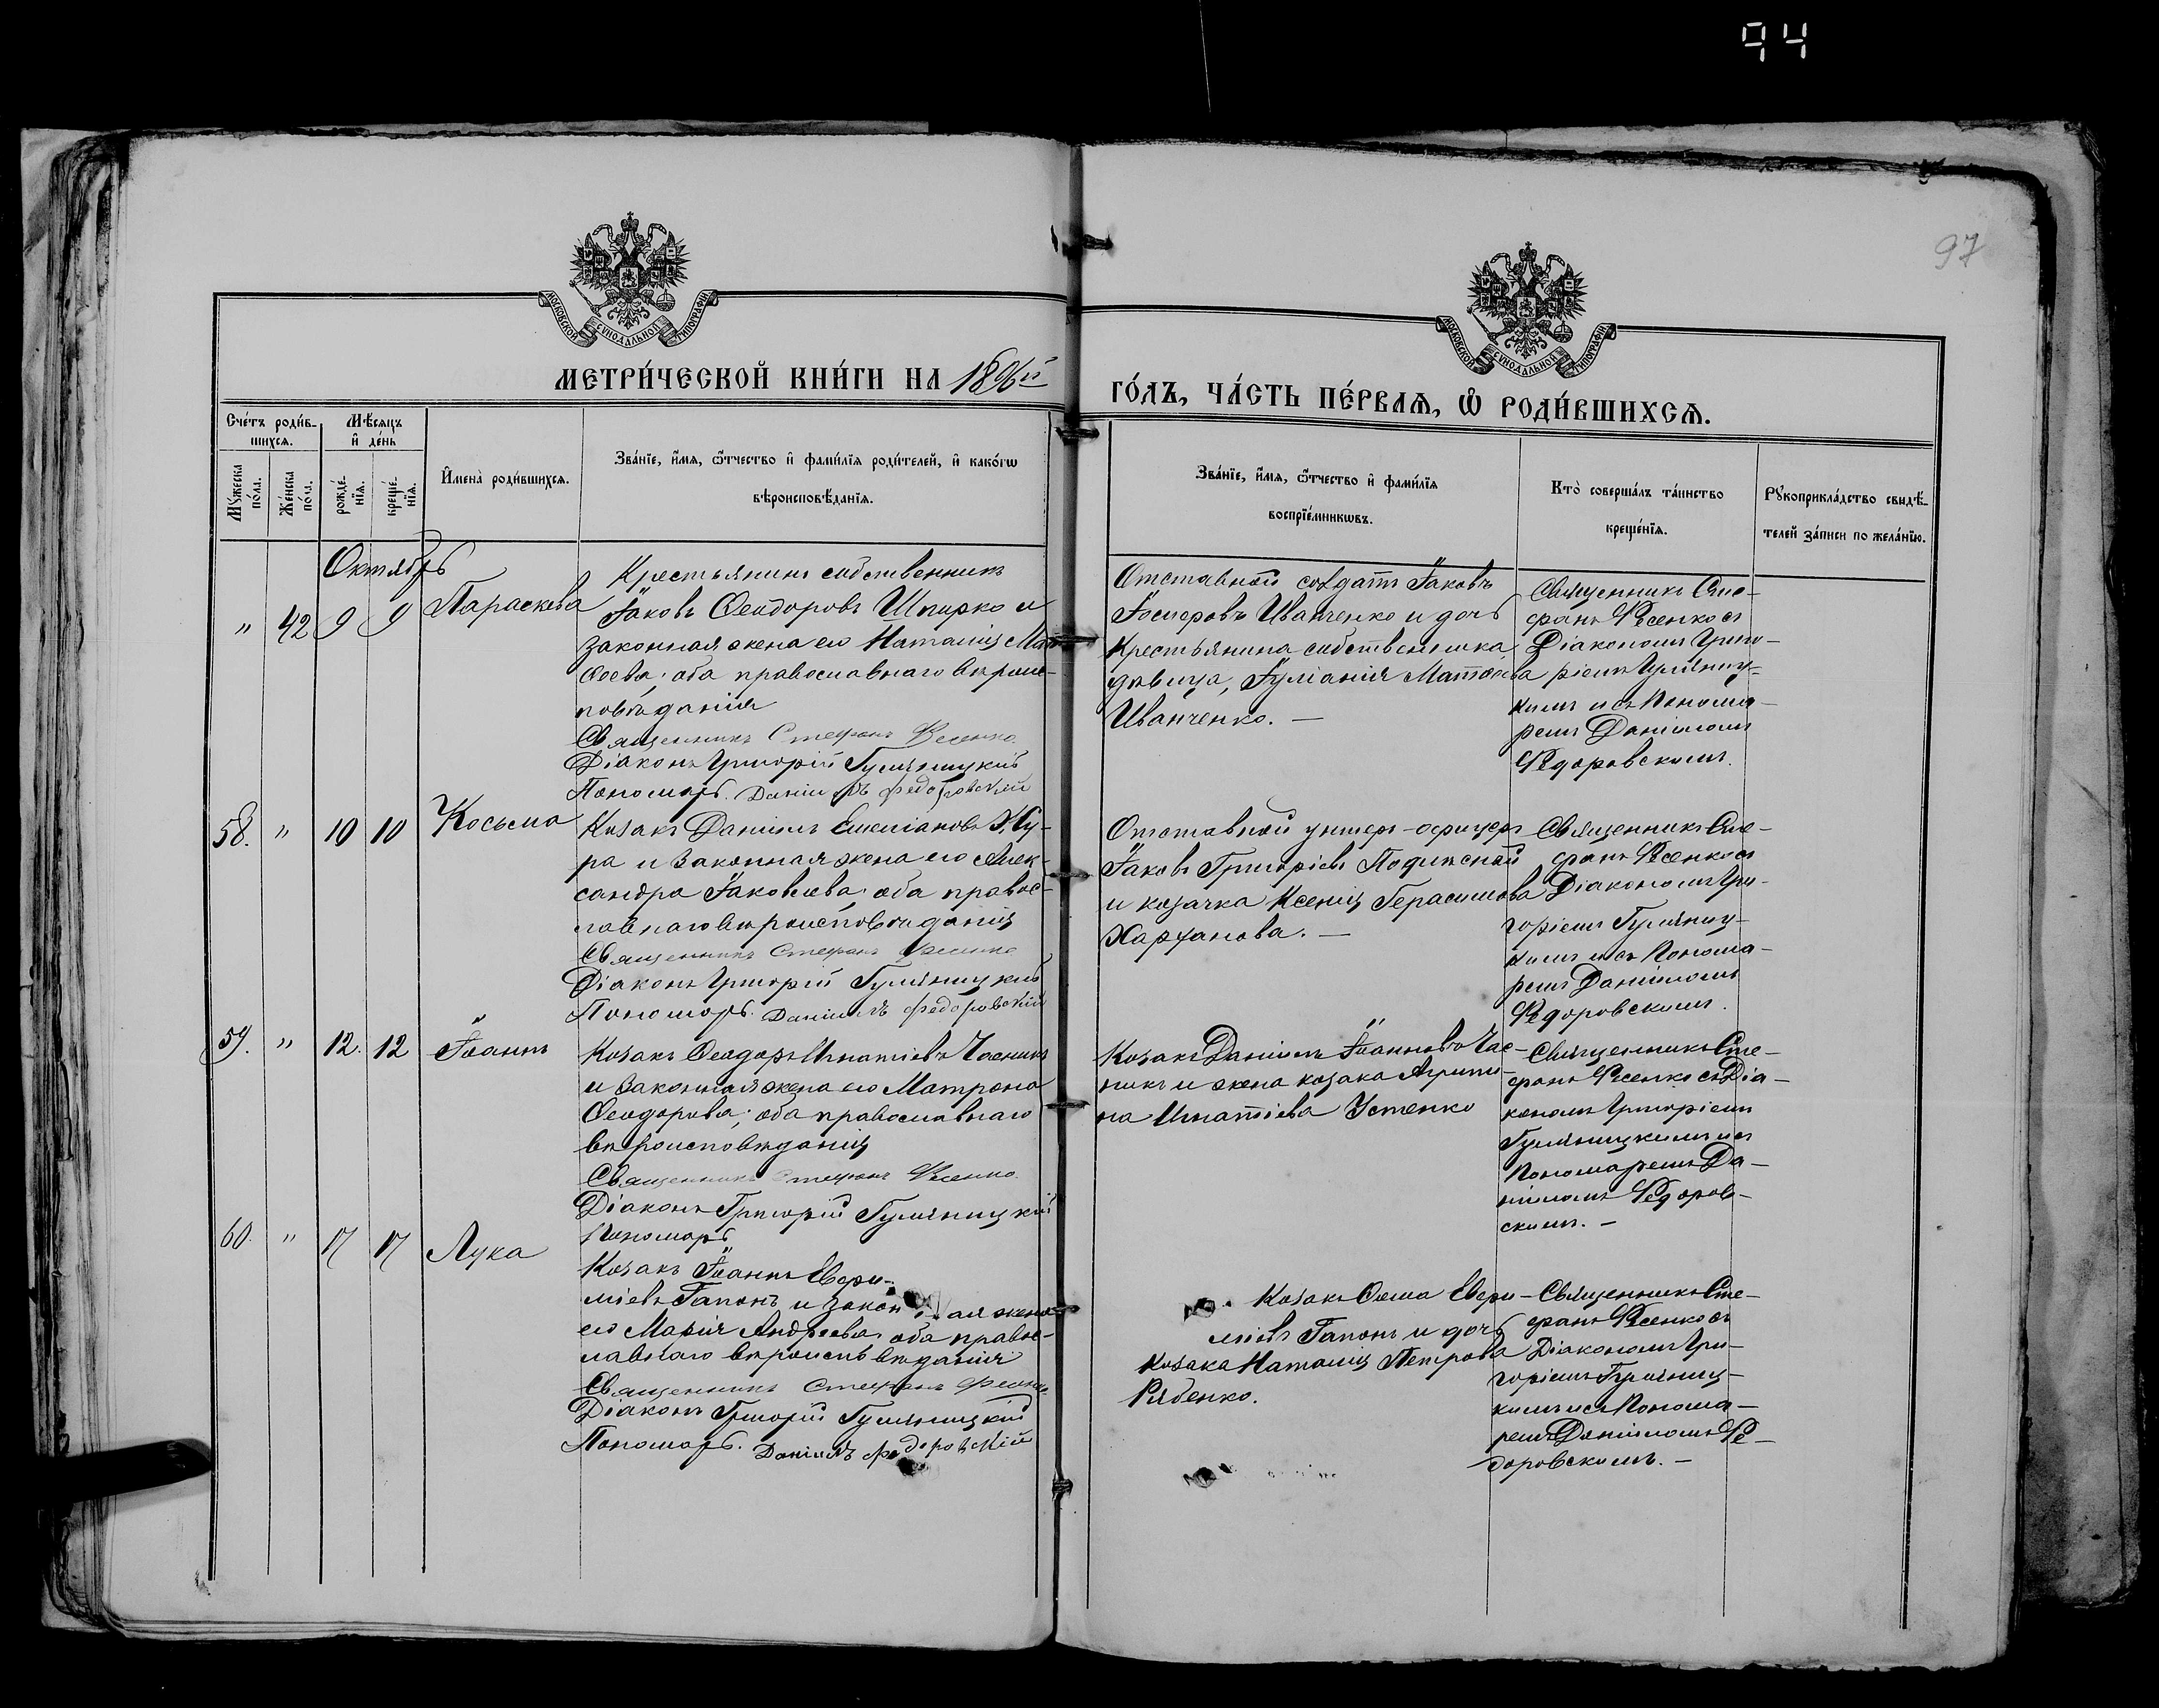 94
97
МОСКОВСКОЙ СѴНОДАЛЬНОЙ ТИПОГРАФІИ
МОСКОВСКОЙ СѴНОДАЛЬНОЙ ТИПОГРАФІИ
МЕТРИ́ЧЕСКОЙ КНИ́ГИ НА 1896й
ГО́ДЪ, ЧА́СТЬ ПЕ́РВАѦ, Ѡ҆ РОДИ́ВШИХСѦ.
Сче́тъ роди́в-
шихсѧ.
Мѣ́сѧцъ
и҆ де́нь
Мꙋ́жеска
по́ла.
Же́нска
по́ла.
рожде́-
нїѧ.
креще́-
нїѧ.
И҆мена̀ роди́вшихсѧ.
Зва́нїе, и҆́мѧ, ѻ҆́тчество и҆ фами́лїѧ роди́телей, и҆ како́гѡ
вѣроисповѣ́данїѧ.
Зва́нїе, и҆́мѧ, ѻ҆́тчество и҆ фами́лїѧ
воспрїе́мникѡвъ.
Кто̀ соверша́лъ та́инство
креще́нїѧ.
Рꙋкоприкла́дство свидѣ́-
телей за́писи по жела́нїю.
Октябрь
" 42 9 9 Параскева
Крестьянинъ собственникъ
Іаковъ Ѳеодоровъ Шпирко и
законная жена его Наталія Мат
ѳеева; оба православнаго вѣроис-
повѣданія
Священникъ Стефанъ Фесенко.
Діаконъ Григорій Гуляницкій
Пономарь. Даніилъ Федоровскій
Отставной солдатъ Іаковъ
Іосифовъ Иванченко и дочь
Крестьянина собственника
дѣвица, Іуліанія Матѳеева
Иванченко. —
Священникъ Сте-
фанъ Фесенко съ
Діакономъ Григо-
ріемъ Гуляниц-
кимъ и съ Понома-
ремъ Даніиломъ
Федоровскимъ.
58. " 10 10 Косьма
Козакъ Даніилъ Емеліановъ
ра и законная жена его Алек-
сандра Іаковлева; оба правос-
лавнаго вѣроисповѣданія
Священникъ Стефанъ Фесенко
Діаконъ Григорій Гуляницкій
Пономарь. Даніилъ Федоровскій
Отставной унтеръ-офицеръ
Іаковъ Григоріевъ
и козачка Ксенія Герасимова
Священникъ Сте-
фанъ Фесенко съ
Діакономъ Гри-
горіемъ Гуляниц-
кимъ и съ Понома-
ремъ Даніиломъ
Федоровскимъ.
59. " 12. 12 Іоаннъ
Козакъ Ѳеодоръ Игнатіевъ Часникъ
и законная жена его Матрона
Ѳеодорова; оба православнаго
вѣроисповѣданія
Священникъ Стефанъ Фесенко.
Діаконъ Григорій Гуляницкій
Пономарь
Козакъ Даніилъ Іоанновъ Час-
никъ и жена козака Агрипи-
на Игнатіева Устенко
Священникъ Сте-
фанъ Фесенко съ Діа-
кономъ Григоріемъ
Гуляницкимъ и съ
Пономаремъ Да-
ніиломъ Федоров-
скимъ. —
60. " 17 17 Лука
Козакъ Іоаннъ Евфи-
міевъ Гапонъ и закон ая жена
его Марія Андреева оба правос-
лавнаго вѣроисповѣданія
Священникъ Стефанъ Фесенко
Діаконъ Григорій Гуляницкій
Пономарь. Даніилъ Федоровскій
Козакъ Ѳома Евфи-
міевъ Гапонъ и дочь
козака Наталія Петрова
Рябенко.
Священникъ Сте-
фанъ Фесенко съ
Діакономъ Гри-
горіемъ Гуляниц-
кимъ и съ Понома-
ремъ Даніиломъ Фе-
доровскимъ. —